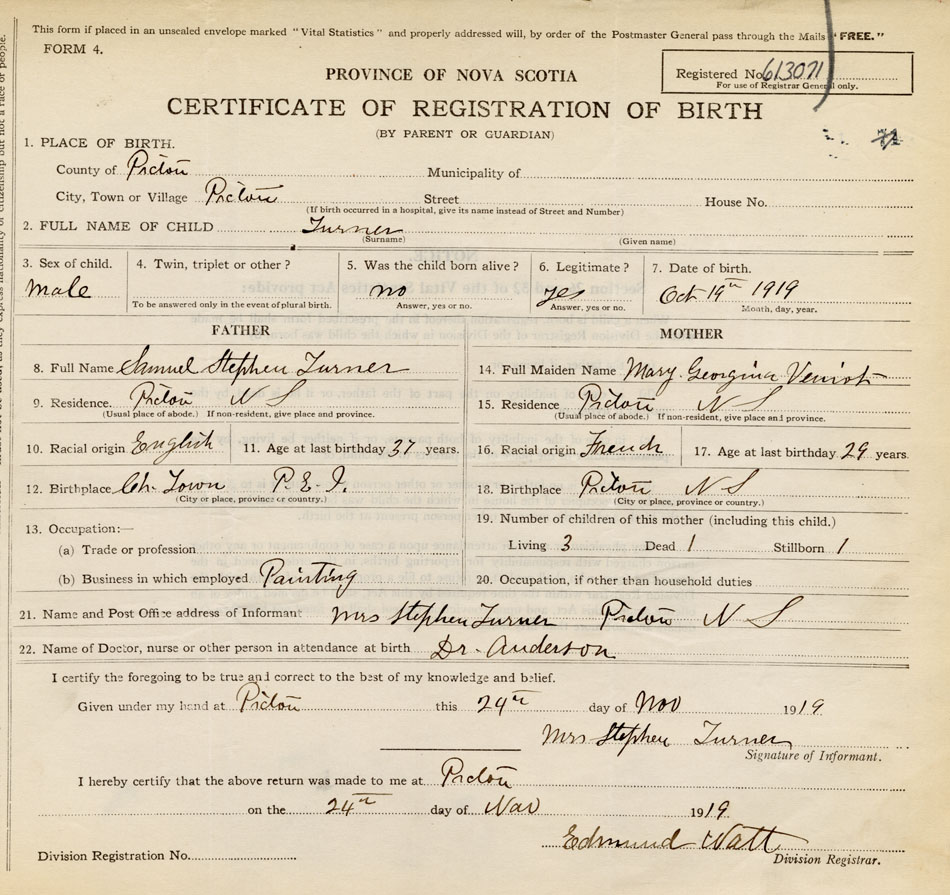 This form if placed in an unsealed envelope marked "Vital Statistics" and properly addressed will, by order of the Postmaster General pass through the Mails "FREE."
FORM 4.
Registered No. 613071
For use of Registrar General only.
PROVINCE OF NOVA SCOTIA
CERTIFICATE OF REGISTRATION OF BIRTH
(BY PARENT OR GUARDIAN)
1. PLACE OF BIRTH.
County of Pictou Municipality of
City, Town or Village Pictou Street House No.
(If birth occurred in a hospital, give its name instead of Street and Number)
2. FULL NAME OF CHILD Turner
(Surname) (Given name)
3. Sex of child. 4. Twin, triplet or other? 5. Was the child born alive? 6. Legitimate? 7. Date of birth.
Male no yes Oct 19th 1919
To be answered only in the event of plural birth. Answer, yes or no. Answer, yes or no. Month, day, year.
FATHER MOTHER
8. Full Name Samuel Stephen Turner 14. Full Maiden Name Mary Georgina Veniot
9. Residence. Pictou N S 15. Residence Pictou N S
(Usual place of abode.) If non-resident, give place and province. (Usual place of abode.) If non-resident, give place and province.
10. Racial origin English 11. Age at last birthday 37 years. 16. Racial origin French 17. Age at last birthday 29 years.
12. Birthplace Ch. Town P.E.I. 18. Birthplace Pictou N S
(City or place, province or country.) (City or place, province or country.)
13. Occupation:— 19. Number of children of this mother (including this child.)
(a) Trade or profession Living 3 Dead 1 Stillborn 1
(b) Business in which employed Painting 20. Occupation, if other than household duties
21. Name and Post Office address of Informant Mrs Stephen Turner Pictou N S
22. Name of Doctor, nurse or other person in attendance at birth Dr. Anderson
I certify the foregoing to be true and correct to the best of my knowledge and belief.
Given under my hand at Pictou this 24th day of Nov 1919
Mrs Stephen Turner
Signature of Informant.
I hereby certify that the above return was made to me at Pictou
on the 24th day of Nov 1919
Edmund Watt
Division Registration No. Division Registrar.